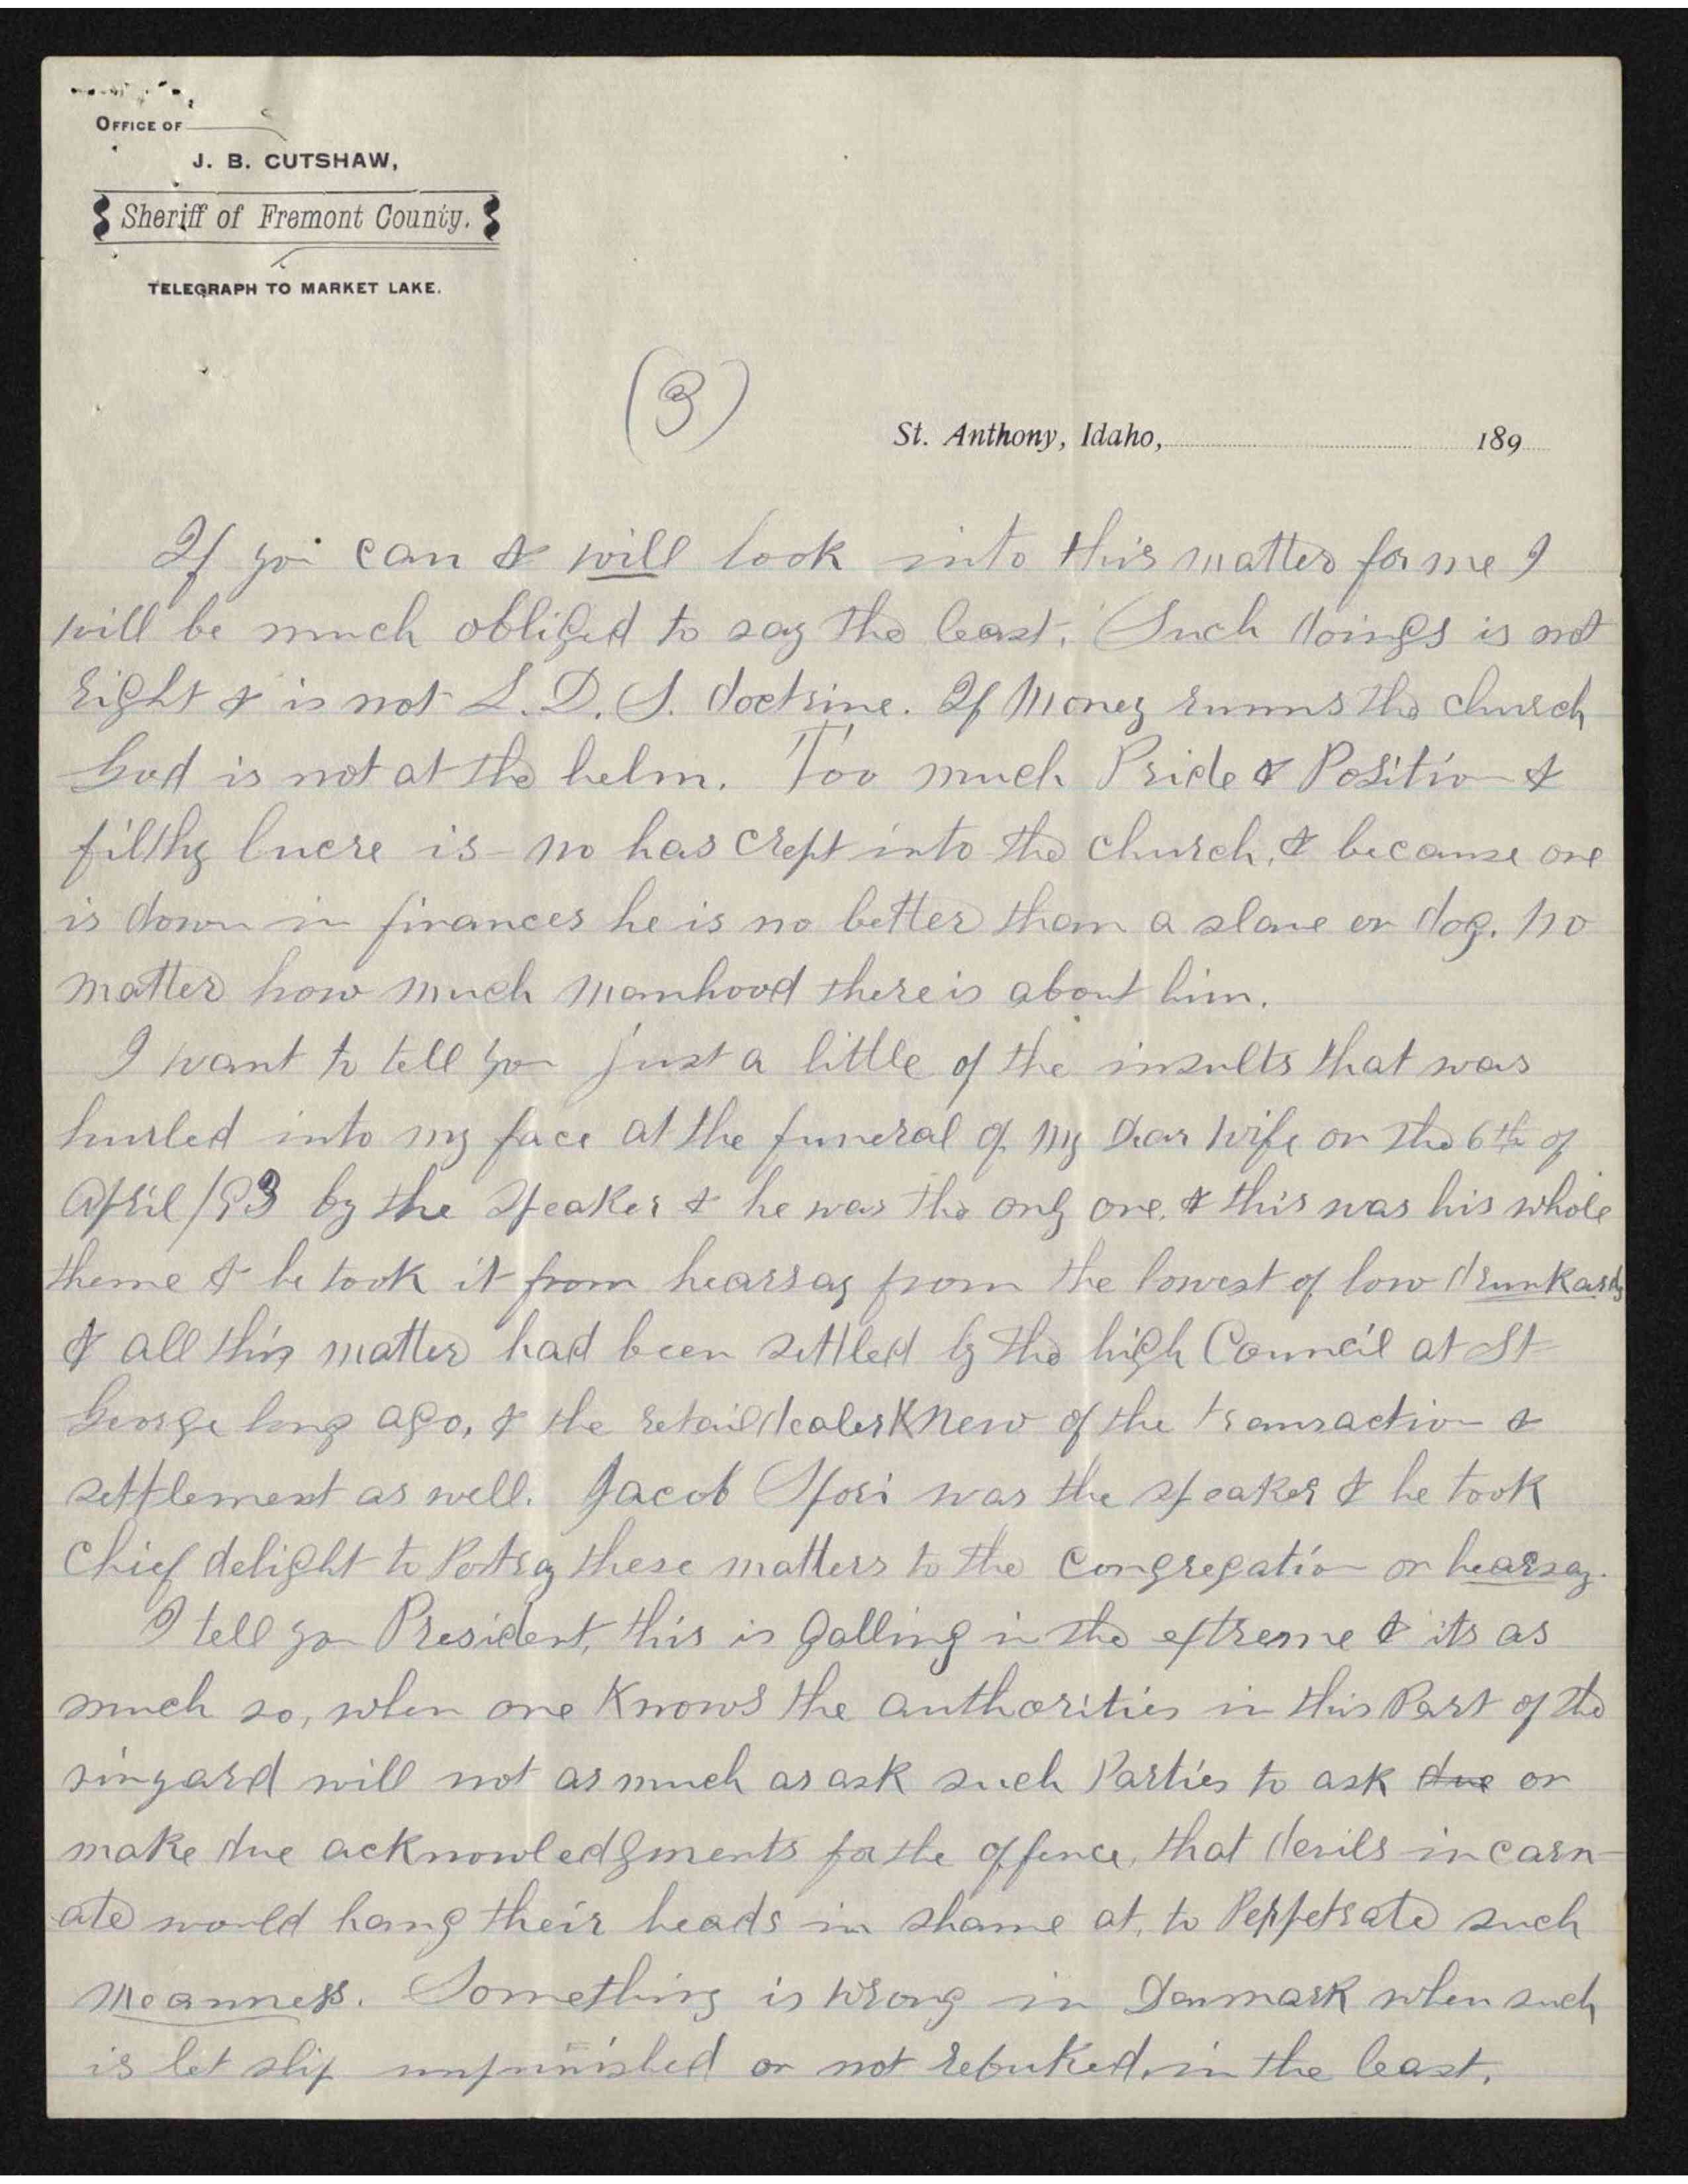 OFFICE OF
J. B. CUTSHAW,
Sheriff of Fremont County.
TELEGRAPH TO MARKET LAKE.
(3)
St. Anthony, Idaho, 189
If you can & will look into this matter for me I
will be much obliged to say the least. Such doings is not
right & is not L.D.S. doctrine. If Money runns the church
God is not at the helm. Too much Pride & Position &
filthy lucre is no has crept into the church, & because one
is down in finances he is no better than a slave or dog. no
matter how much manhood there is about him.
I want to tell you just a little of the insults that was
hurled into my face at the funeral of my dear wife on the 6th of
April /93 by the speaker & he was the only one, & this was his whole
theme & he took it from hearsay from the lowest of low drunkards
& all this matter had been settled by the high Council at St
George long ago, & the retail dealer Knew of the transaction &
settlement as well. Jacob Spori was the speaker & he took
Chief delight to Portray these matters to the congregation on hearsay.
I tell you President, this is galling in the extreme & its as
much so, when one Knows the authorities in this Part of the
vinyard will not as much as ask such Parties to ask due or
make due acknowledgments for the offence, that devils incarn-
ate would hang their heads in shame at, to Perpetrate such
meanness. Something is wrong in Denmark when such
is let slip unpunished or not rebuked, in the least.